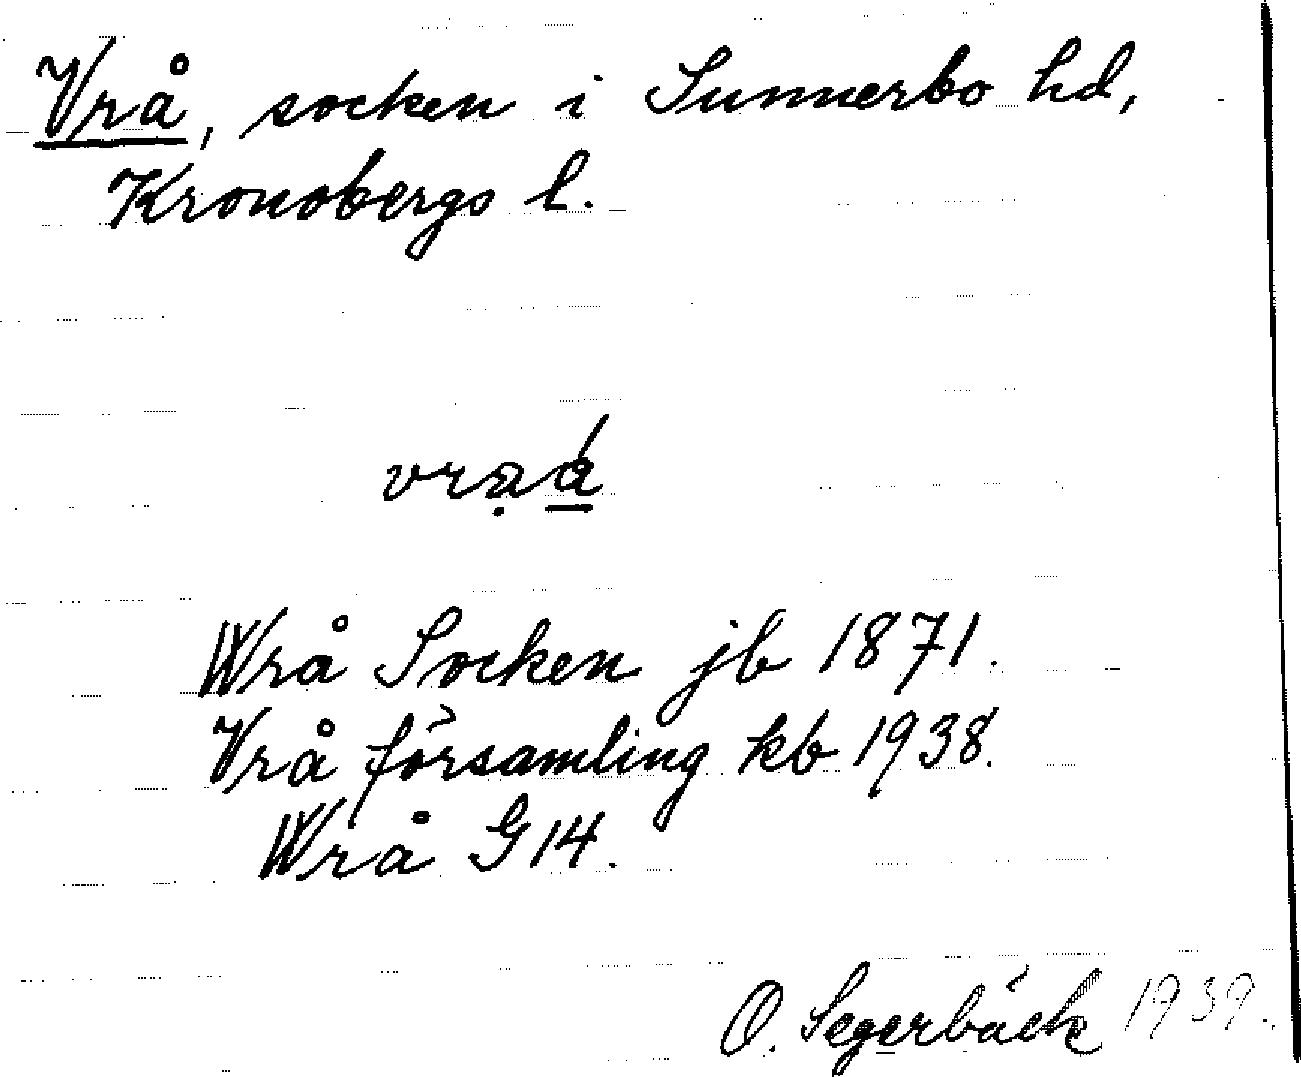 Vrå, socken i Sunnerbo hd,
Kronobergs l.
Wrå Socken jb 1871.
Vrå församling kb 1938.
Wrå G14.
O. Segerbäck 1939.